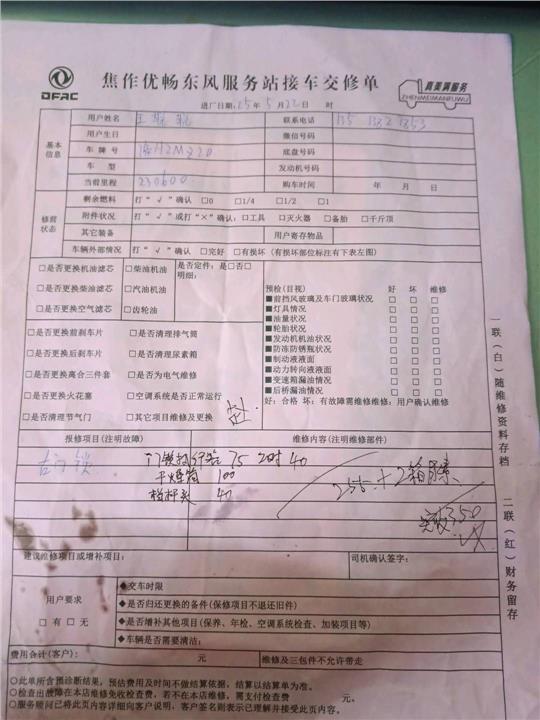 DFAC
焦作优畅东风服务站接车交修单
真美满服务
ZHENMEIMANFUWU
进厂日期：25年5月22日 时
基本信息
用户姓名 王 联系电话
用户生日 微信号码
车牌号 底盘号码
车型 发动机号码
当前里程 230600 购车时间 年 月 日
修前状态
剩余燃料 打“√”确认 □0 □1/4 □1/2 □1
附件状况 打“√”或打“×”确认：□工具 □灭火器 □备胎 □千斤顶
其它装备 用户寄存物品
车辆外部情况 打“√”确认 □完好 □有损坏（有损坏部位标注有下表左图）
□是否更换机油滤芯 □柴油机油
□是否更换柴油滤芯 □汽油机油
□是否更换空气滤芯 □齿轮油
是否定件：是□否□
明细：
□是否更换前刹车片 □是否清理排气筒
□是否更换后刹车片 □是否清理尿素箱
□是否更换离合三件套 □是否为电气维修
□是否更换火花塞 □空调系统是否正常运行
□是否清理节气门 □其它项目维修及更换
预检(目视) 好 坏 维修
■前挡风玻璃及车门玻璃状况 □ □ □
■灯具情况 □ □ □
■油量状况 □ □ □
■轮胎状况 □ □ □
■发动机机油状况 □ □ □
■防冻防锈瓶状况 □ □ □
■制动液液面 □ □ □
■动力转向液液面 □ □ □
■变速箱漏油情况 □ □ □
■后桥漏油情况 □ □ □
好：合格 坏：有故障需维修维修：用户确认维修
报修项目（注明故障） 维修内容（注明维修部件）
右门锁
75 工时 40
干燥筒 100
40
255+2箱尿素
350
建议维修项目或增补项目： 司机确认签字：
用户要求
□有 □无
◆交车时限
◆是否归还更换的备件（保修项目不退还旧件）
◆是否增补其他项目（保养、年检、空调系统检查、加装项目等）
◆车辆是否需要清洁：
费用合计(客户)： 元 维修及三包件不允许带走
○此单所含预诊断结果，预估费用及时间不做结算依据，结算以结算单为准。
○检查出故障在本店维修免收检查费，若不在本店维修，需支付检查费 元。
○服务顾问已将此页内容详细向客户说明，客户签名则表示已理解并接受此页内容。
一联（白）随维修资料存档
二联（红）财务留存